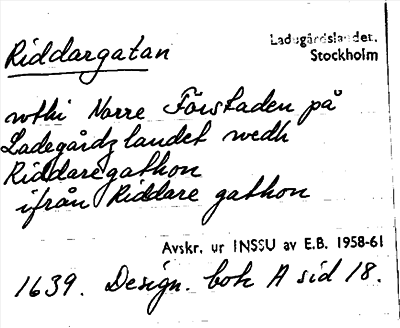 Riddargatan
Ladugårdslandet.
Stockholm
wthi Norre Förstaden på
Ladegårdzlandet wedh
Riddaregathon
ifrån Riddare gathon
Avskr. ur INSSU av E.B. 1958-61
1639. Design. bok A sid 18.